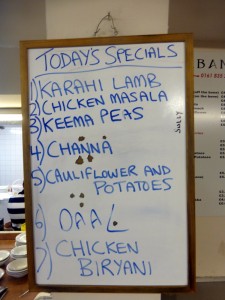 TODAY'S SPECIALS
1) KARAHI LAMB
2) CHICKEN MASALA
3) KEEMA PEAS
4) CHANNA
5) CAULIFLOWER AND
POTATOES
6) DAAL
7) CHICKEN
BIRYANI
BAN